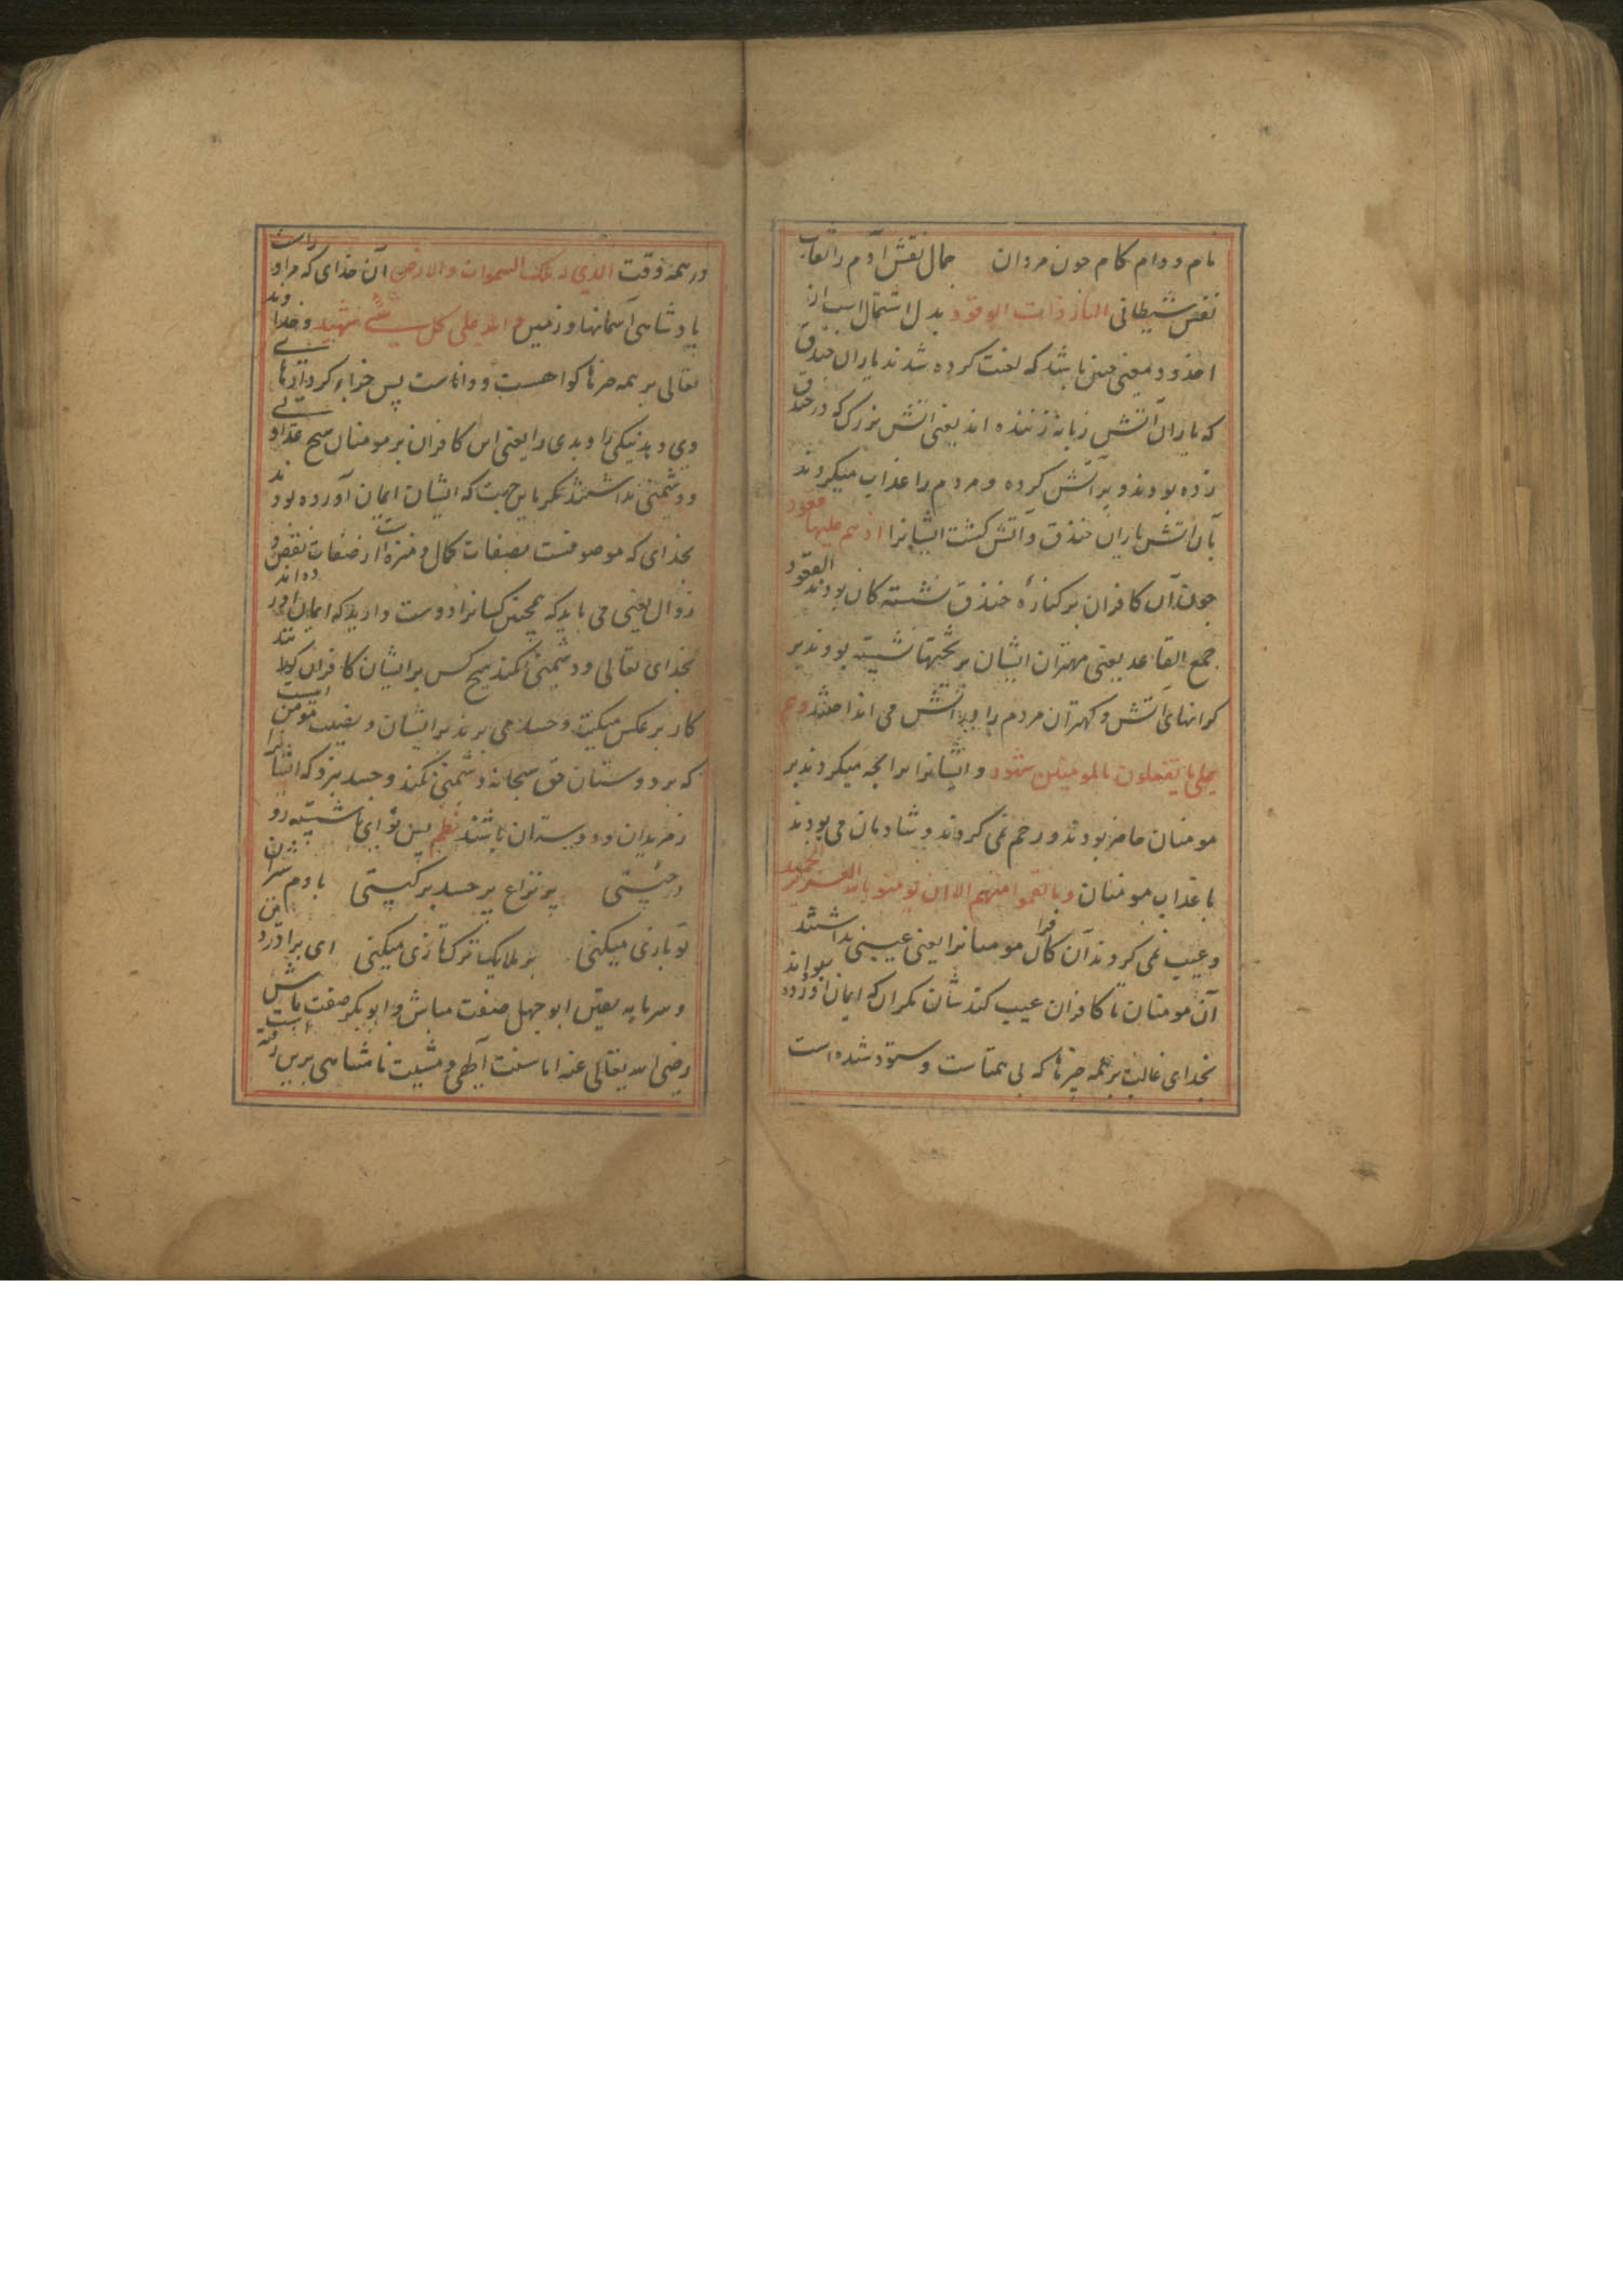 نام و دوام کام چون مردان جمال نقش آدم را نقاب
نفس شیطانی النار ذات الوقود بدل اشتمال است از
اخدود و معنی چنین باشد که لعنت کرده شدند یاران خندق
که یاران آتش زبانه زننده اند یعنی آتش بزرک که در خندق
زده بودند و پر آتش کرده و مردم را عذاب میکردند
بآن آتش یاران خندق و آتش کشت ایشانرا اذ هم علیها قعود
چون آن کافران بر کنارهٔ خندق نشسته کان بودند القعود
جمع القاعد یعنی مهتران ایشان بر تختها نشسته بودند بر
کرانهای آتش و کهتران مردم را در آتش می انداختند و هم
علی ما یفعلون بالمومنین شهود و ایشانرا برانچه میکردند بر
مومنان حاضر بودند و رحم نمی کردند و شادمان می بودند
با عذاب مومنان و ما نقموا منهم الا ان یومنوا بالله العزیز الحمید
و عیب نمی کردند آن کافران مومنانرا یعنی عیبی نداشتند
آن مومنان تا کافران عیب کنند شان مکر آن که ایمان آورده بودند
بخدای غالب بر همه چیزها که بی همتاست و ستوده شده است
در همه وقت الذی له ملک السموات والارض آن خدای که مر او راست
پادشاهی آسمانها و زمین و الله علی کل شیء شهید و خداوند
تعالی بر همه چیزها کواهست و داناست پس جزاء کردارهای
وی دهد نیکی را و بدی را یعنی این کافران بر مومنان هیچ عداوتی
و دشمنی نداشتند مکر باین جهت که ایشان ایمان آورده بودند
بخدای که موصوفست بصفات کمال و منزه است از صفات نقص و
زوال یعنی می باید که همچنین کسانرا دوست دارید که ایمان آورده اند
بخدای تعالی و دشمنی نکند هیچ کس بر ایشان کافران کویا
کار بر عکس میکنند و حسد می برند بر ایشان و نصیب مومن آنست
که بر دوستان حق سبحانه دشمنی نکند و حسد نبرد که ایشانرا
از مریدان و دوستداران باشند نظم پس تو ای ناشسته رو
در چیستی پر نزاع پر حسد بر کیستی با دم شیران
تو بازی میکنی بر ملایک ترکتازی میکنی ای برادر دین
و سرمایه یقین ابو جهل صفت مباش و ابو بکر صفت باش
رضی الله تعالی عنه اما سنت آلهی و مشیت نامتناهی برین رفته است